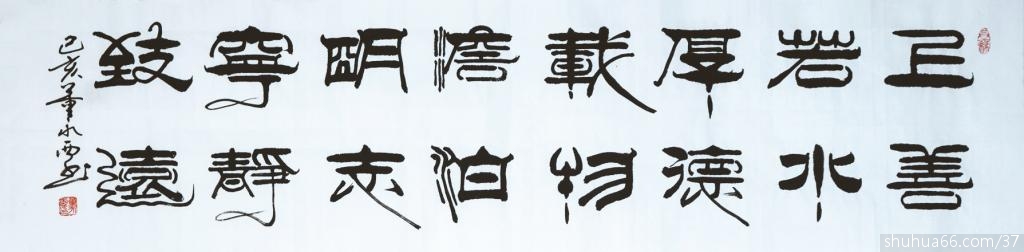 上善
若水
厚德
載物
澹泊
明志
寧靜
致遠
己亥董
shuhua66.com/37